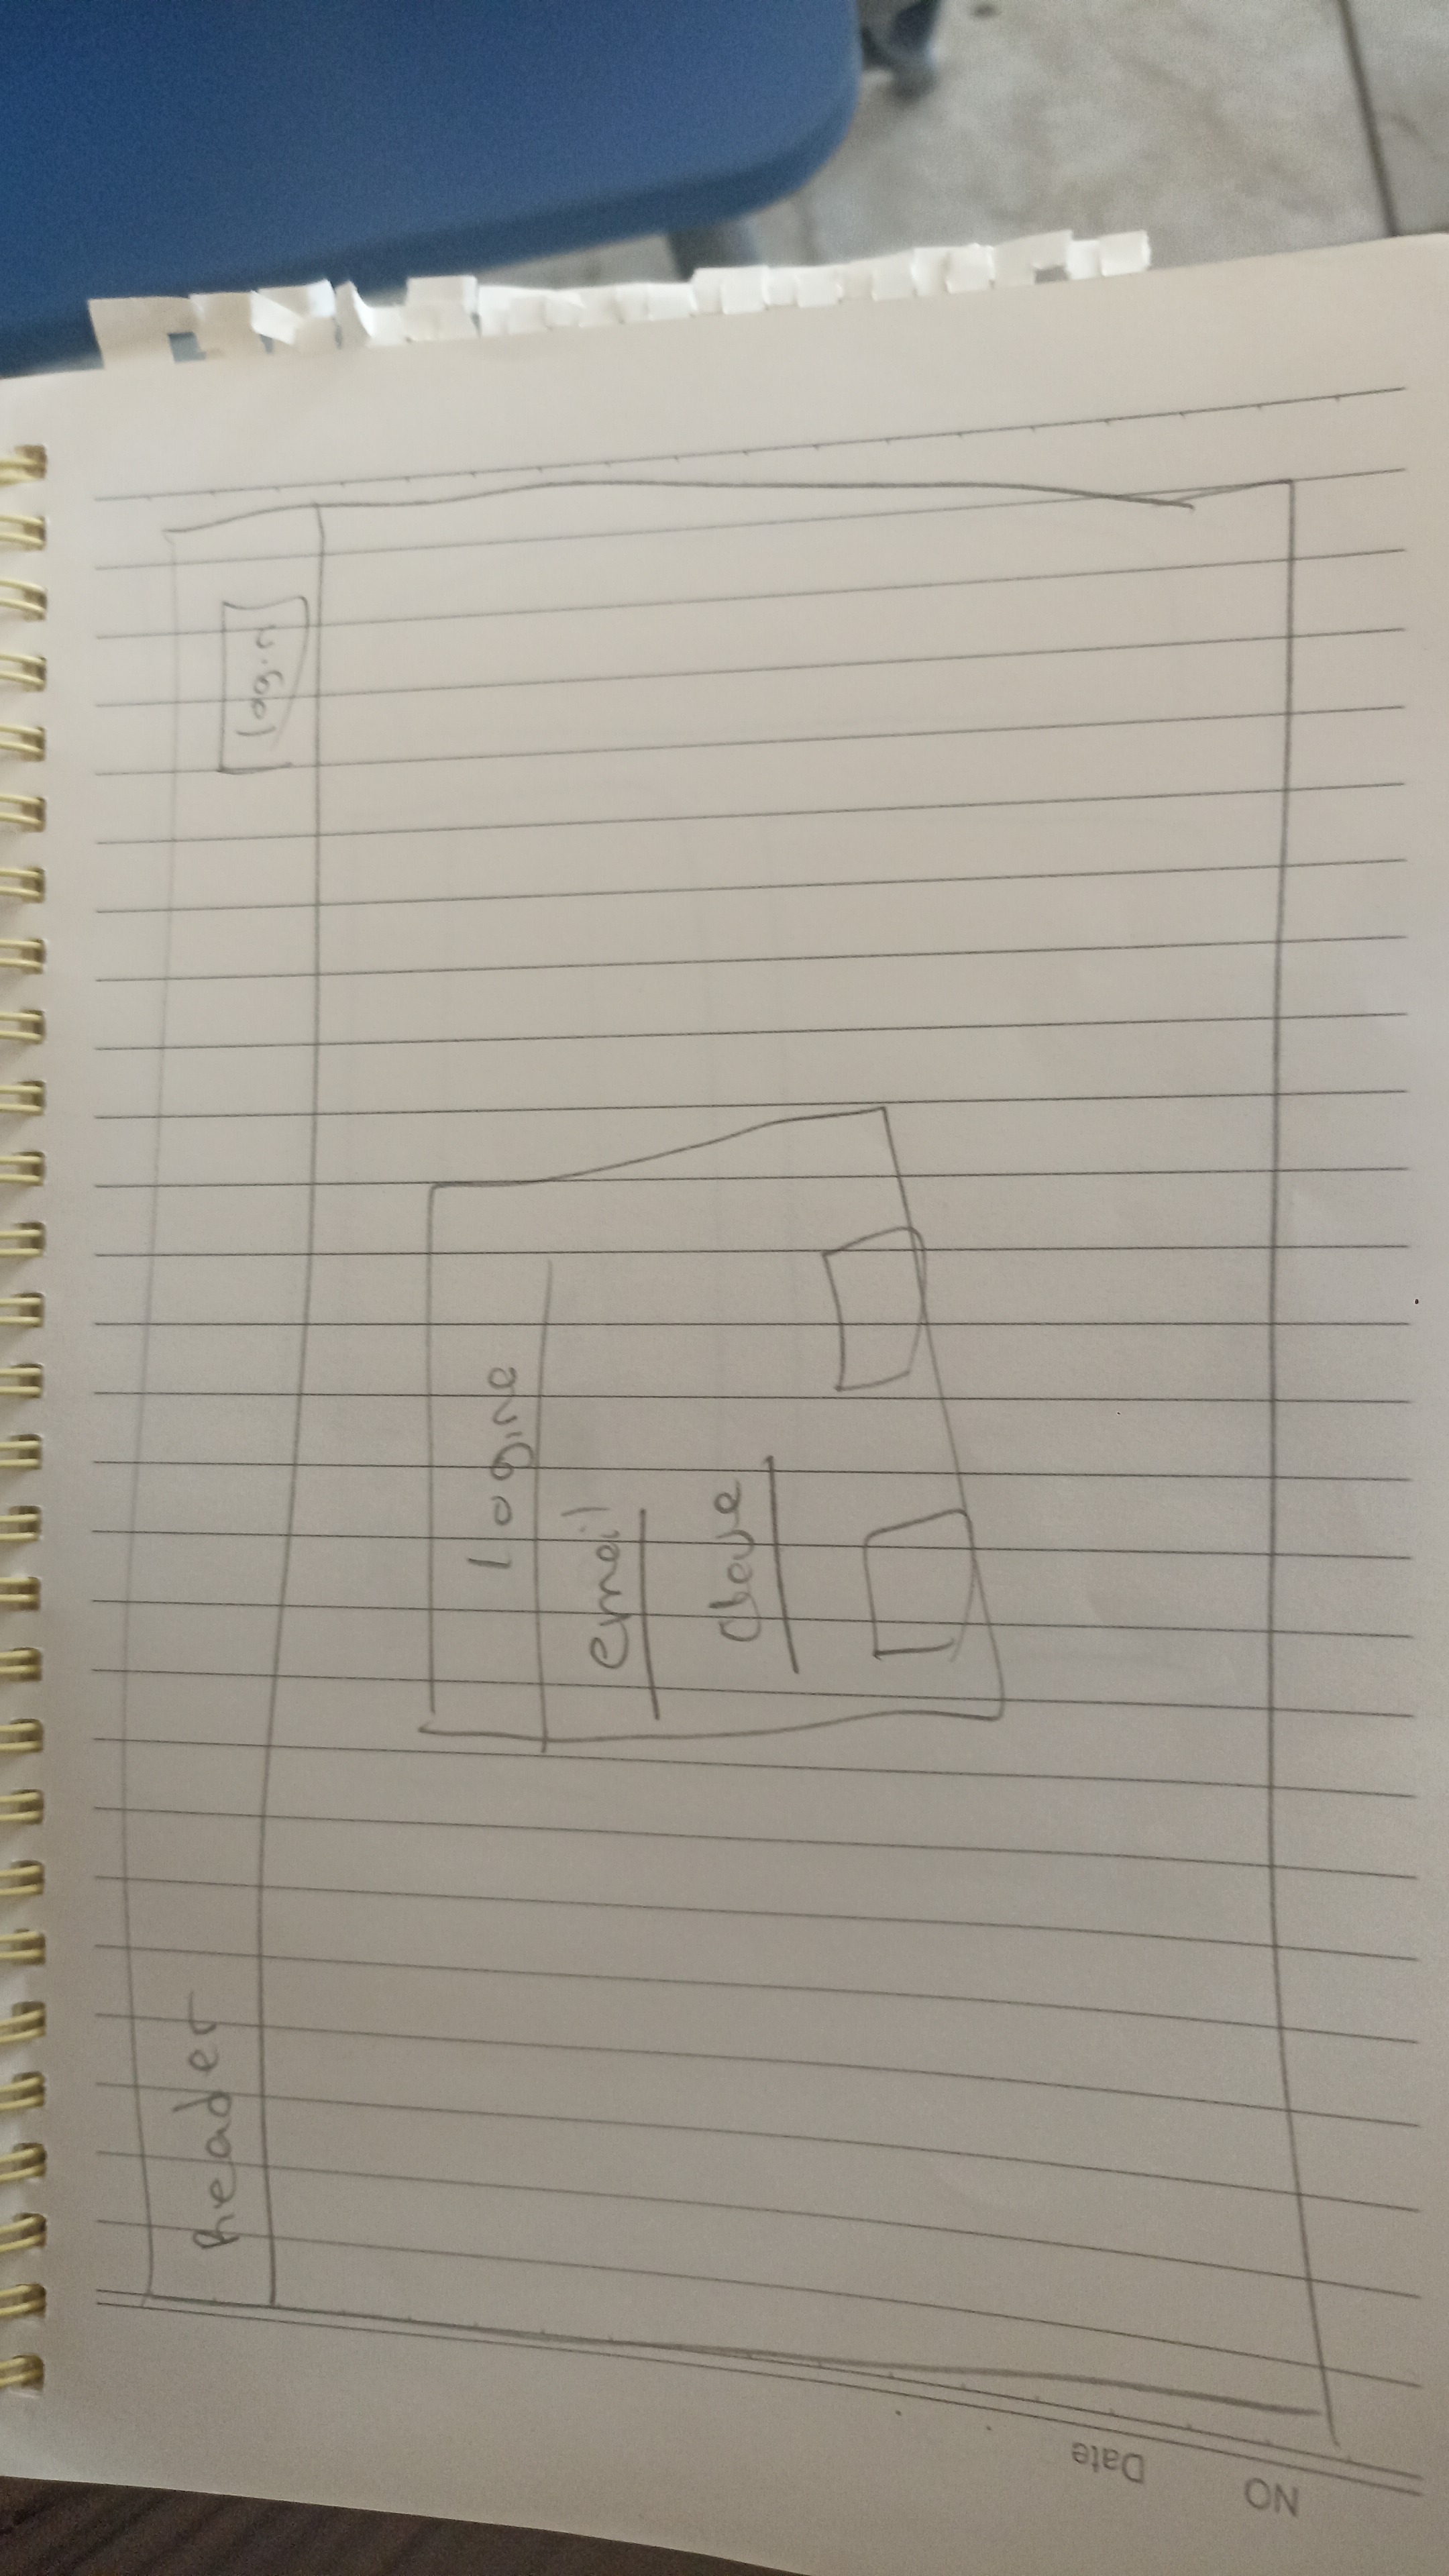 header
login
logine
email
clave
Date
NO